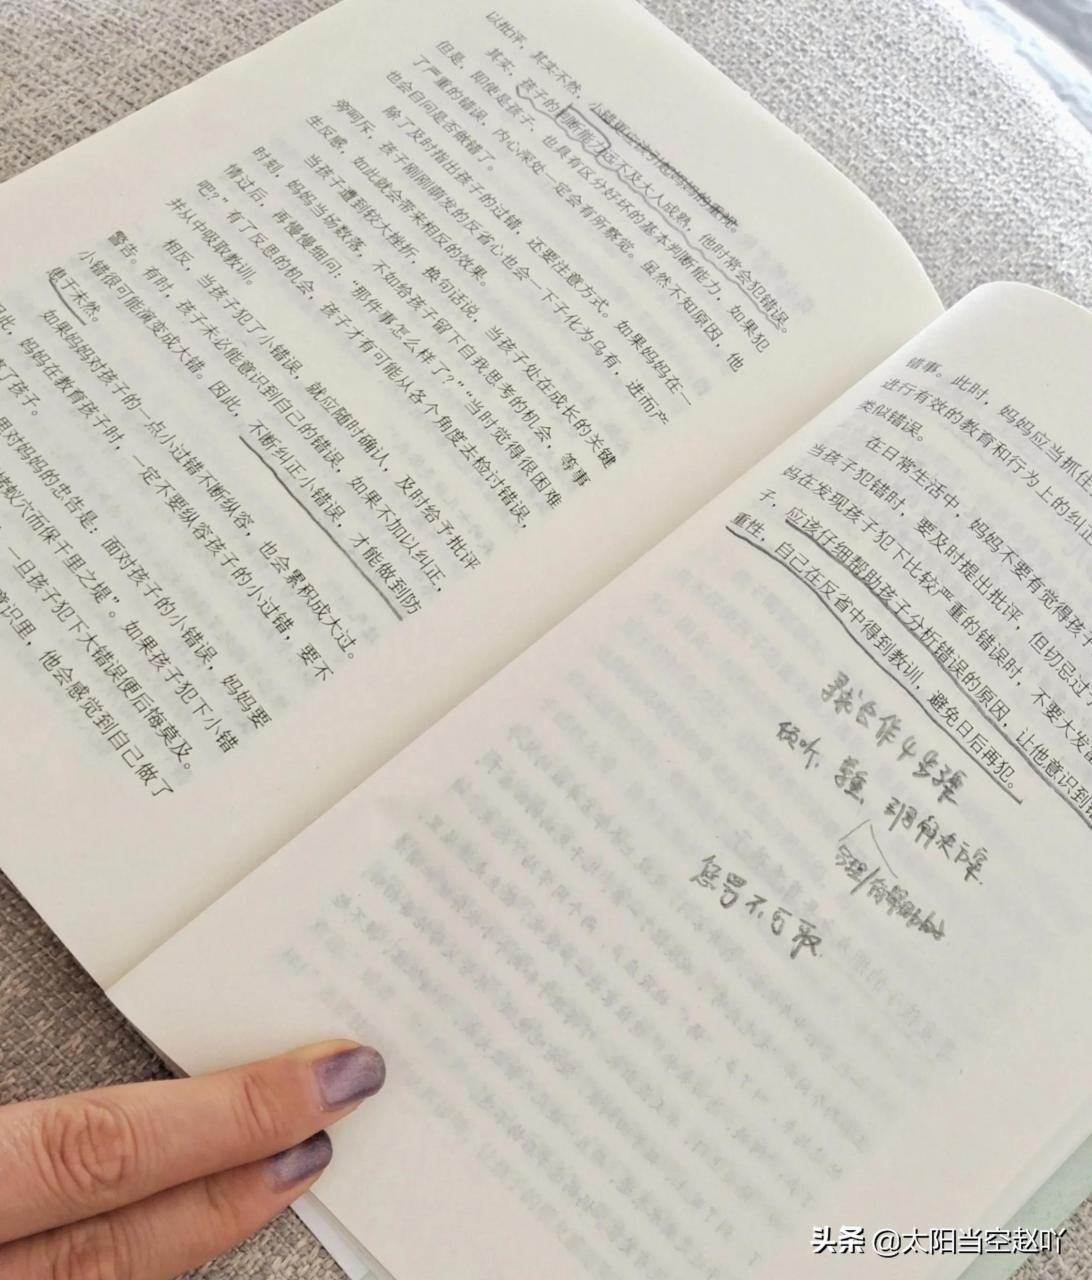 以批评，其实不然，小错更应该引起妈妈的重视。
其实，孩子的判断能力远不及大人成熟，他时常会犯错误。
但是，即使是孩子，也具有区分好坏的基本判断能力，如果犯
了严重的错误，内心深处一定会有所察觉。虽然不知原因，他
也会自问是否做错了。
除了及时指出孩子的过错，还要注意方式。如果妈妈在一
旁呵斥，孩子刚刚萌发的反省心也会一下子化为乌有，进而产
生反感，如此就会带来相反的效果。
当孩子遭到较大挫折，换句话说，当孩子处在成长的关键
时刻，妈妈当场数落，不如给孩子留下自我思考的机会，等事
情过后，再慢慢细问：“那件事怎么样了？”“当时觉得很困难
吧？”有了反思的机会，孩子才有可能从各个角度去检讨错误，
并从中吸取教训。
相反，当孩子犯了小错误，就应随时确认，及时给予批评
警告。有时，孩子未必能意识到自己的错误，如果不加以纠正，
小错很可能演变成大错。因此，不断纠正小错误，才能做到防
患于未然。
如果妈妈对孩子的一点小过错不断纵容，也会累积成大过。
此，妈妈在教育孩子时，一定不要纵容孩子的小过错，要不
了孩子。
里对妈妈的忠告是：面对孩子的小错误，妈妈要
蚁穴而保千里之堤”。如果孩子犯下小错
一旦孩子犯下大错误便后悔莫及。
意识里，他会感觉到自己做了
错事。此时，妈妈应当抓住
进行有效的教育和行为上的纠正
类似错误。
在日常生活中，妈妈不要有觉得孩子
当孩子犯错时，要及时提出批评，但切忌过
妈在发现孩子犯下比较严重的错误时，不要大发雷
子，应该仔细帮助孩子分析错误的原因，让他意识到错
重性，自己在反省中得到教训，避免日后再犯。
寻求合作4步骤
倾听，
惩罚不可取
头条 @太阳当空赵吖